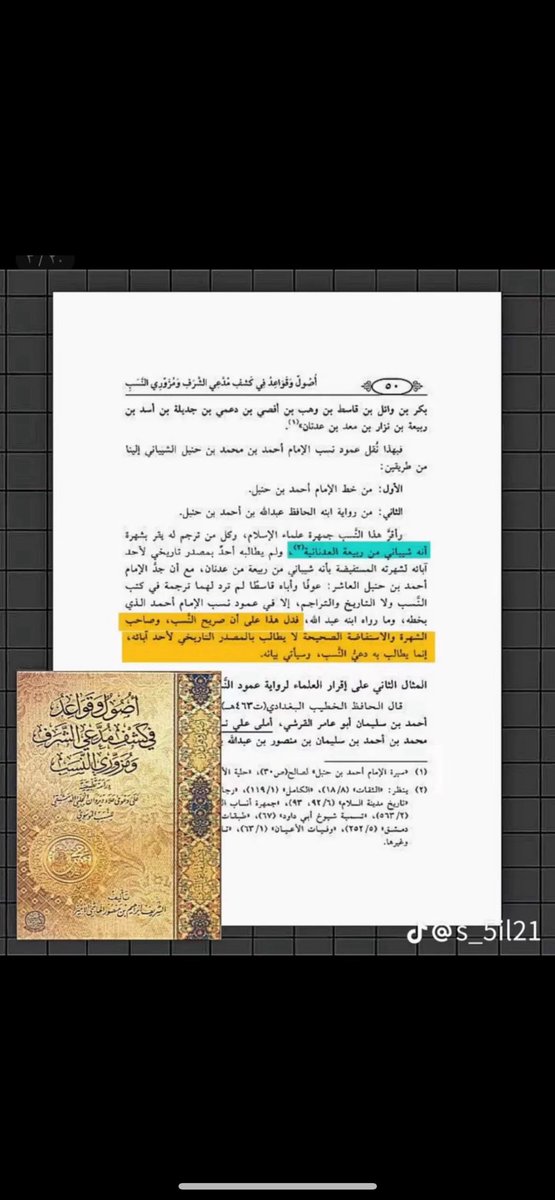 ٢ / ٢٠
٥٠
أُصُولٌ وَقَوَاعِدُ فِي كَشْفِ مُدَّعِي الشَّرَفِ وَمُزَوِّرِي النَّسَبِ
بكر بن وائل بن قاسط بن وهب بن أفصي بن دعمي بن جديلة بن أسد بن
ربيعة بن نزار بن معد بن عدنان»(١).
فبهذا نُقل عمود نسب الإمام أحمد بن محمد بن حنبل الشيباني إلينا
من طريقين:
الأول: من خط الإمام أحمد بن حنبل.
الثاني: من رواية ابنه الحافظ عبدالله بن أحمد بن حنبل.
وأقرَّ هذا النَّسب جمهرة علماء الإسلام، وكل من ترجم له يقر بشهرة
أنه شيباني من ربيعة العدنانية(٢)، ولم يطالبه أحدٌ بمصدر تاريخي لأحد
آبائه لشهرته المستفيضة بأنه شيباني من ربيعة من عدنان، مع أن جدَّ الإمام
أحمد بن حنبل العاشر: عوفًا وأباه قاسطًا لم ترد لهما ترجمة في كتب
النَّسب ولا التاريخ والتراجم، إلا في عمود نسب الإمام أحمد الذي
بخطه، وما رواه ابنه عبد الله، فدل هذا على أن صريح النَّسب، وصاحب
الشهرة والاستفاضة الصحيحة لا يطالب بالمصدر التاريخي لأحد آبائه،
إنما يطالب به دعيُّ النَّسب، وسيأتي بيانه.
المثال الثاني على إقرار العلماء لرواية عمود
قال الحافظ الخطيب البغدادي(ت٤٦٣هـ)
أحمد بن سليمان أبو عامر القرشي، أملى علي
محمد بن أحمد بن سليمان بن منصور بن عبدالله
(١) «سيرة الإمام أحمد بن حنبل» لصالح(ص٣٠)، «حلية
(٢) ينظر: «الثقات» (١٨/٨)، «الكامل» (١١٩/١)،
«تاريخ مدينة السلام» (٩٢/٦، ٩٣)، «جمهرة أنساب
(٥٦٣/٢)، «تسمية شيوخ أبي داود» (٦٧)، «طبقات
دمشق» (٢٥٢/٥)، «وفيات الأعيان» (٦٣/١)،
وغيرها.
أصول وقواعد
في كشف مدعي الشرف
ومزوري النسب
تأليف
الشريف إبراهيم بن منصور الهاشمي الأمير
@s_5il21